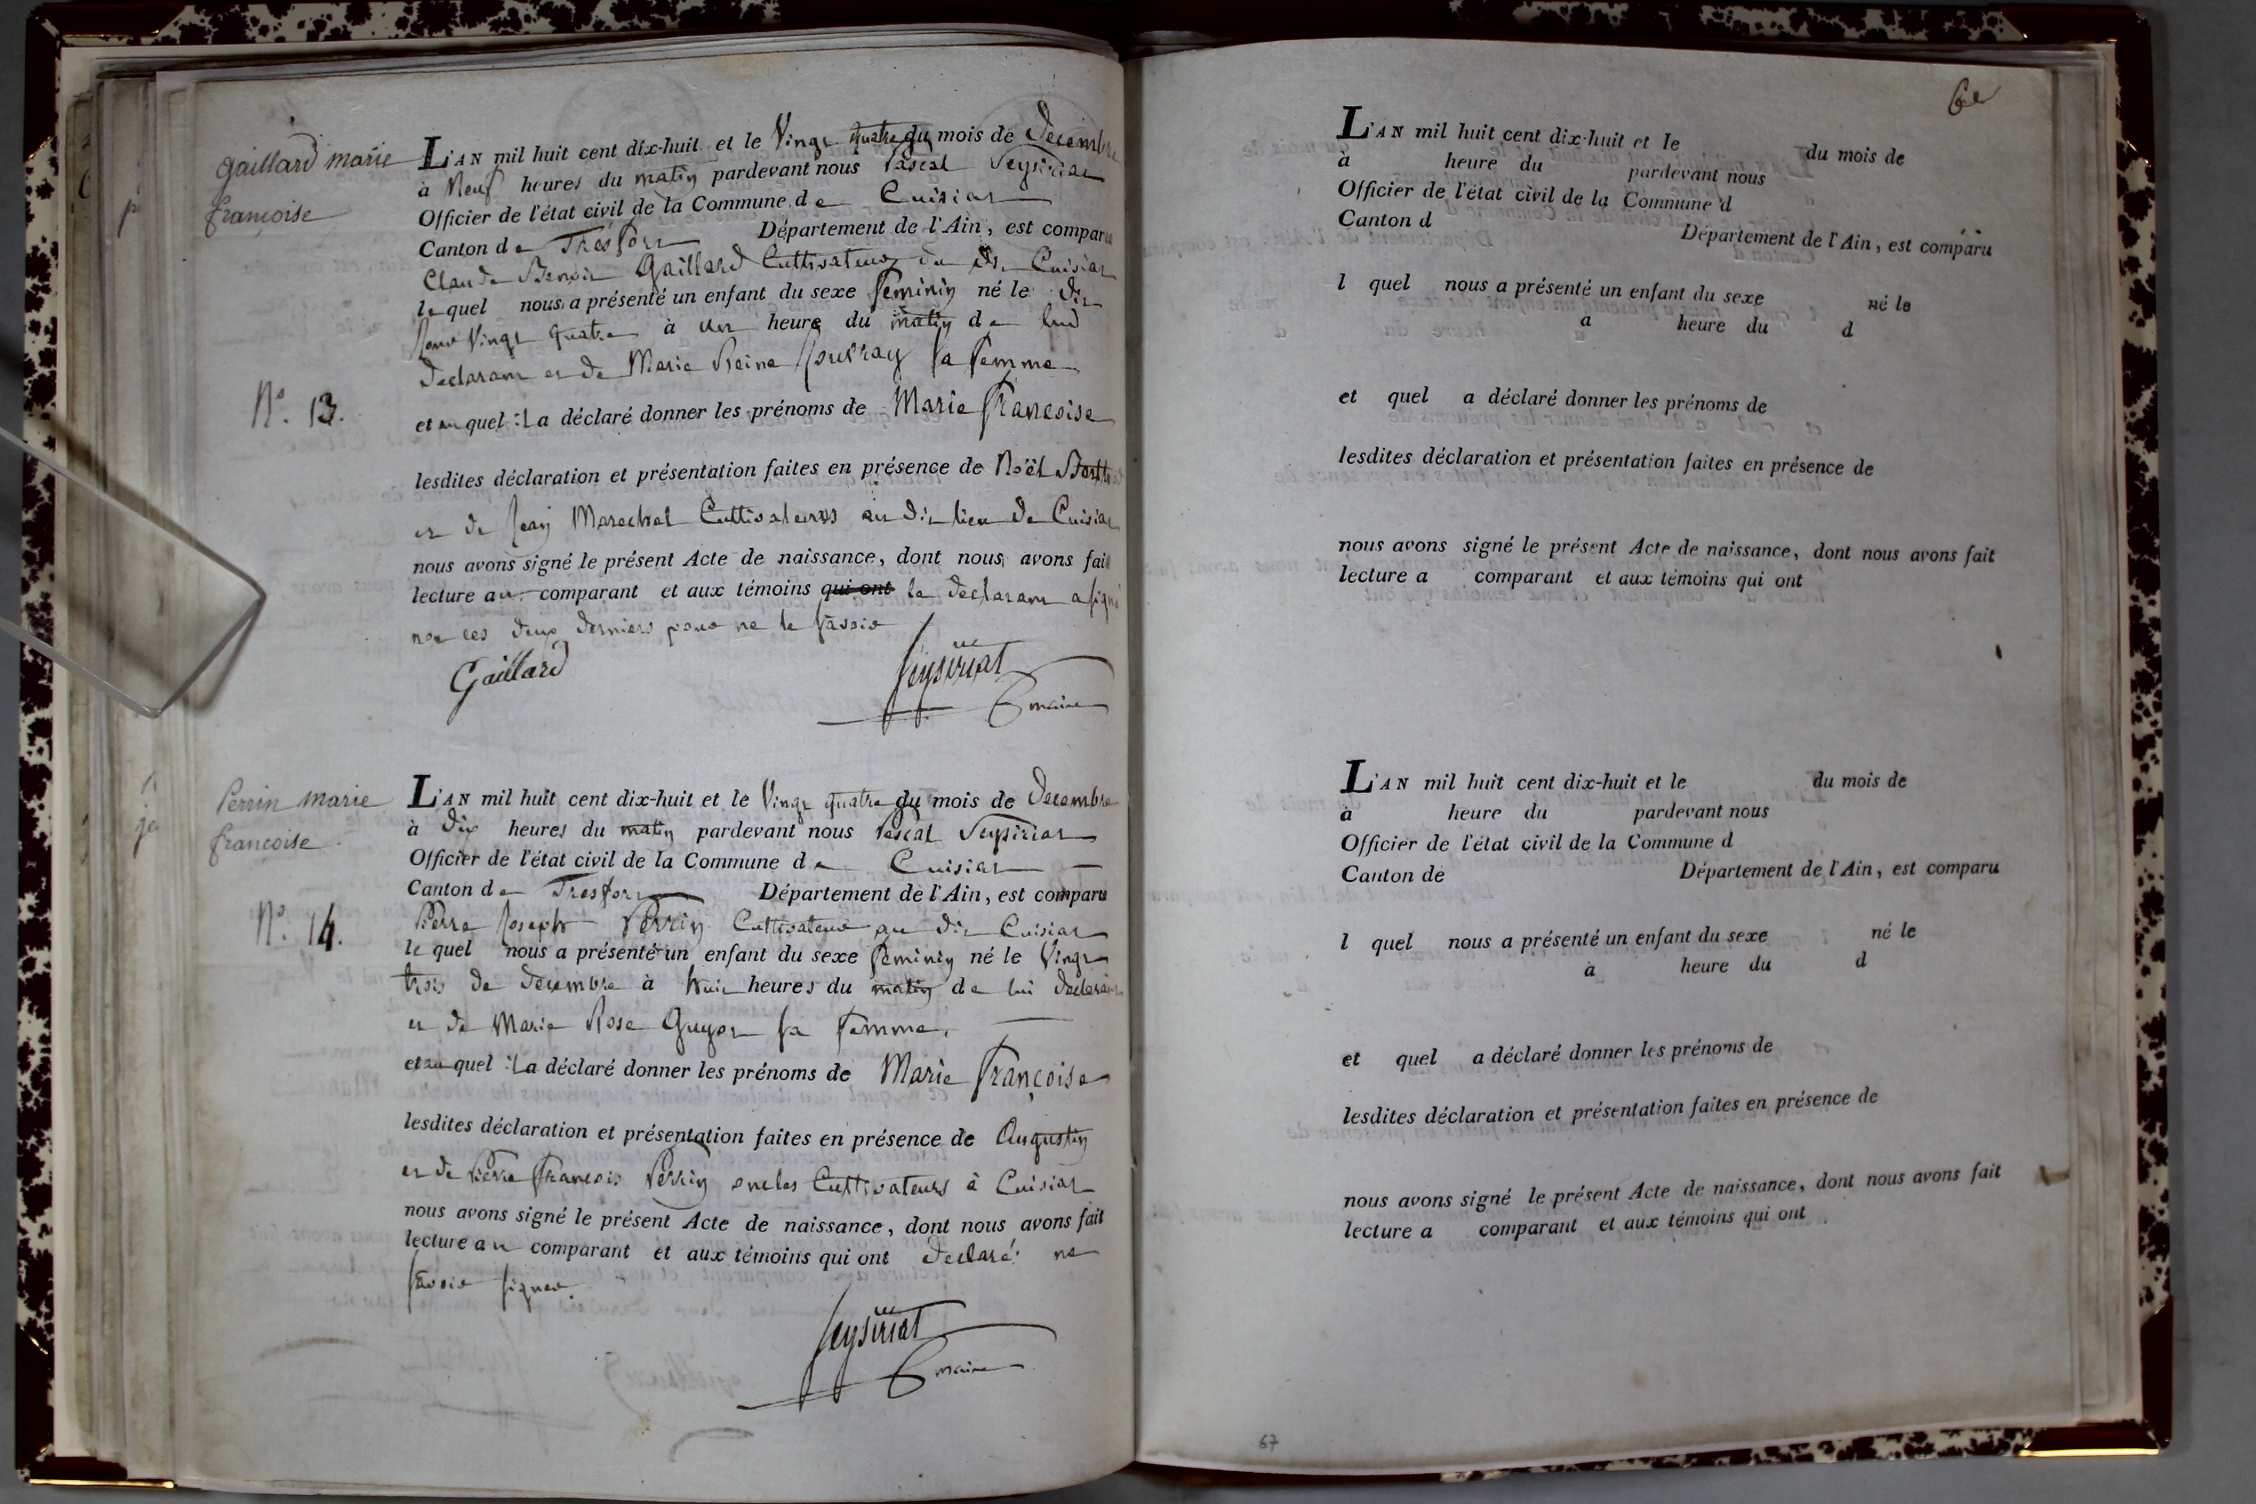 gaillard marie
françoise
N.o 13.
L'AN mil huit cent dix-huit et le Vingt quatre du mois de Decembre
à Neuf heures du matin pardevant nous Pascal Seysiriat
Officier de l'état civil de la Commune de Cuisiat
Canton de Tresfort Département de l'Ain, est comparu
Claude Benoit Gaillard Cultivateur du dit Cuisiat
lequel nous a présenté un enfant du sexe feminin né le dit
jour Vingt quatre à une heure du matin de lui
declarant et de Marie Reine sa femme
et au quel il a déclaré donner les prénoms de Marie françoise
lesdites déclaration et présentation faites en présence de Noël
et de Jean Marechal Cultivateurs au dit lieu de Cuisiat
nous avons signé le présent Acte de naissance, dont nous avons fait
lecture au comparant et aux témoins qui ont le declarant a signé
non ces deux derniers pour ne le savoir
Gaillard Seysiriat
maire
Perrin marie
françoise
N.o 14.
L'AN mil huit cent dix-huit et le Vingt quatre du mois de Decembre
à dix heures du matin pardevant nous Pascal Seysiriat
Officier de l'état civil de la Commune de Cuisiat
Canton de Tresfort Département de l'Ain, est comparu
Pierre Joseph Perrin Cultivateur au dit Cuisiat
lequel nous a présenté un enfant du sexe feminin né le Vingt
trois de decembre à huit heures du matin de lui declarant
et de Marie Rose Guyot sa femme.
et au quel il a déclaré donner les prénoms de Marie françoise
lesdites déclaration et présentation faites en présence de Augustin
et de Pierre françois Perrin oncles Cultivateurs à Cuisiat
nous avons signé le présent Acte de naissance, dont nous avons fait
lecture au comparant et aux témoins qui ont declaré ne
savoir signer.
Seysiriat
maire
L'AN mil huit cent dix-huit et le du mois de
à heure du pardevant nous
Officier de l'état civil de la Commune d
Canton d Département de l'Ain, est comparu
l quel nous a présenté un enfant du sexe né le
à heure du d
et quel a déclaré donner les prénoms de
lesdites déclaration et présentation faites en présence de
nous avons signé le présent Acte de naissance, dont nous avons fait
lecture a comparant et aux témoins qui ont
L'AN mil huit cent dix-huit et le du mois de
à heure du pardevant nous
Officier de l'état civil de la Commune d
Canton de Département de l'Ain, est comparu
l quel nous a présenté un enfant du sexe né le
à heure du d
et quel a déclaré donner les prénoms de
lesdites déclaration et présentation faites en présence de
nous avons signé le présent Acte de naissance, dont nous avons fait
lecture a comparant et aux témoins qui ont
67